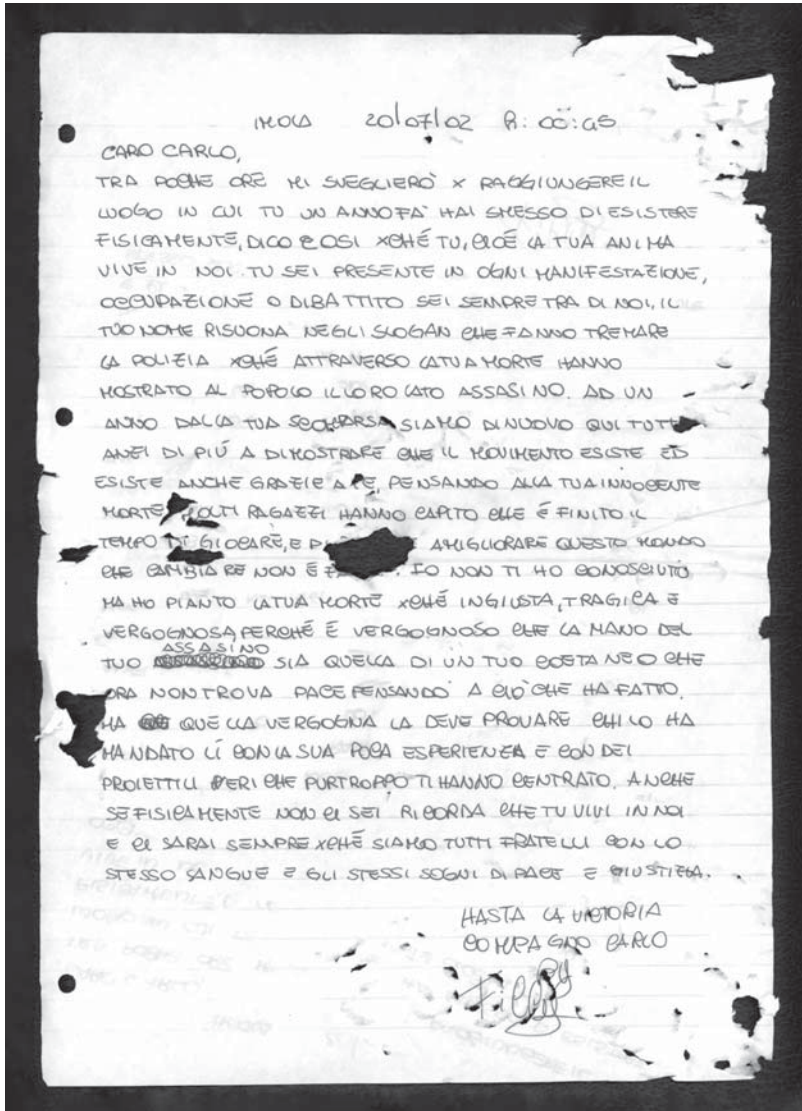 IMOLA 20/07/02 R: 00:45
CARO CARLO,
TRA POCHE ORE MI SVEGLIERÒ X RAGGIUNGERE IL
LUOGO IN CUI TU UN ANNO FA' HAI SMESSO DI ESISTERE
FISICAMENTE, DICO COSI XCHÉ TU, CIOÉ LA TUA ANIMA
VIVE IN NOI. TU SEI PRESENTE IN OGNI MANIFESTAZIONE,
OCCUPAZIONE O DIBATTITO SEI SEMPRE TRA DI NOI, IL
TUO NOME RISUONA NEGLI SLOGAN CHE FANNO TREMARE
LA POLIZIA XCHÉ ATTRAVERSO LA TUA MORTE HANNO
MOSTRATO AL POPOLO IL LORO LATO ASSASINO. AD UN
ANNO DALLA TUA SCOMPARSA SIAMO DI NUOVO QUI TUTTI
ANZI DI PIÚ A DIMOSTRARE CHE IL MOVIMENTO ESISTE ED
ESISTE ANCHE GRAZIE A TE, PENSANDO ALLA TUA INNOCENTE
MORTE MOLTI RAGAZZI HANNO CAPITO CHE É FINITO IL
TEMPO DI GIOCARE, E A MIGLIORARE QUESTO MONDO
CHE CAMBIARE NON É . IO NON TI HO CONOSCIUTO
MA HO PIANTO LA TUA MORTE XCHÉ INGIUSTA, TRAGICA E
VERGOGNOSA, PERCHÉ É VERGOGNOSO CHE LA MANO DEL
TUO ASSASINO SIA QUELLA DI UN TUO COETANEO CHE
ORA NON TROVA PACE PENSANDO A CIO' CHE HA FATTO.
MA QUELLA VERGOGNA LA DEVE PROVARE CHI LO HA
MANDATO LÍ CON LA SUA POCA ESPERIENZA E CON DEI
PROIETTILI VERI CHE PURTROPPO TI HANNO CENTRATO. ANCHE
SE FISICAMENTE NON CI SEI RICORDA CHE TU VIVI IN NOI
E CI SARAI SEMPRE XCHÉ SIAMO TUTTI FRATELLI CON LO
STESSO SANGUE E GLI STESSI SOGNI DI PACE E GIUSTIZIA.
HASTA LA VICTORIA
COMPAGNO CARLO